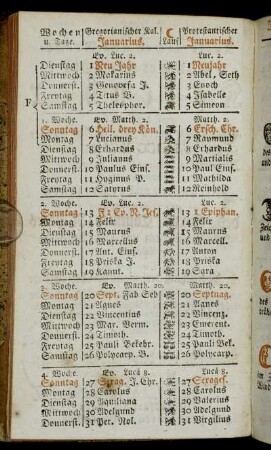 Wochen | Gregorianischer Kal. | ☾ | Protestantischer
u. Tage. | Januarius. | Lauf | Januarius.
Ev. Luc. 2. | Luc. 2.
Dienstag | 1 Neu Jahr | 1 Neujahr
Mittwoch | 2 Makarius | 2 Abel, Seth
Donnerst. | 3 Genovefa J. | 3 Enoch
Freytag | 4 Titus B. | 4 Isabelle
F Samstag | 5 Thelesphor. | 5 Simeon
1. Woche. | Ev. Matth. 2. | Matth. 2.
Sonntag | 6 Heil. drey Kön. | 6 Ersch. Chr.
Montag | 7 Lucianus | 7 Raymund
Dienstag | 8 Erhardus | 8 Erhardus
Mittwoch | 9 Julianus | 9 Martialis
Donnerst. | 10 Paulus Eins. | 10 Paul Eins.
Freytag | 11 Hyginus P. | 11 Mathilda
Samstag | 12 Satyrus | 12 Reinhold
2. Woche. | Ev. Luc. 2. | Luc. 2.
Sonntag | 13 F: Ep. N. Jes. | 13 1 Epiphan.
Montag | 14 Felix | 14 Felix
Dienstag | 15 Maurus | 15 Maurus
Mittwoch | 16 Marcellus | 16 Marcell.
Donnerst. | 17 Ant. Eins. | 17 Anton
Freytag | 18 Priska J. | 18 Priska
Samstag | 19 Kanut. | 19 Sara
3. Woche. | Ev. Matth. 20. | Matth. 20.
Sonntag | 20 Sept. Fab Seb | 20 Septuag.
Montag | 21 Agnes | 21 Agnes
Dienstag | 22 Vincentius | 22 Vincenz.
Mittwoch | 23 Mar. Verm. | 23 Emerent.
Donnerst. | 24 Timoth. | 24 Timoth.
Freytag | 25 Pauli Bekehr. | 25 Pauli Bek.
Samstag | 26 Polycarp. B. | 26 Polycarp.
4. Woche. | Ev. Lucä 8. | Lucä 8.
Sonntag | 27 Sexag. J. Chr. | 27 Sexages.
Montag | 28 Carolus | 28 Carolus
Dienstag | 29 Aquiliana | 29 Valerius
Mittwoch | 30 Adelgund | 30 Adelgund
Donnerst. | 31 Pet. Nol. | 31 Virgilius